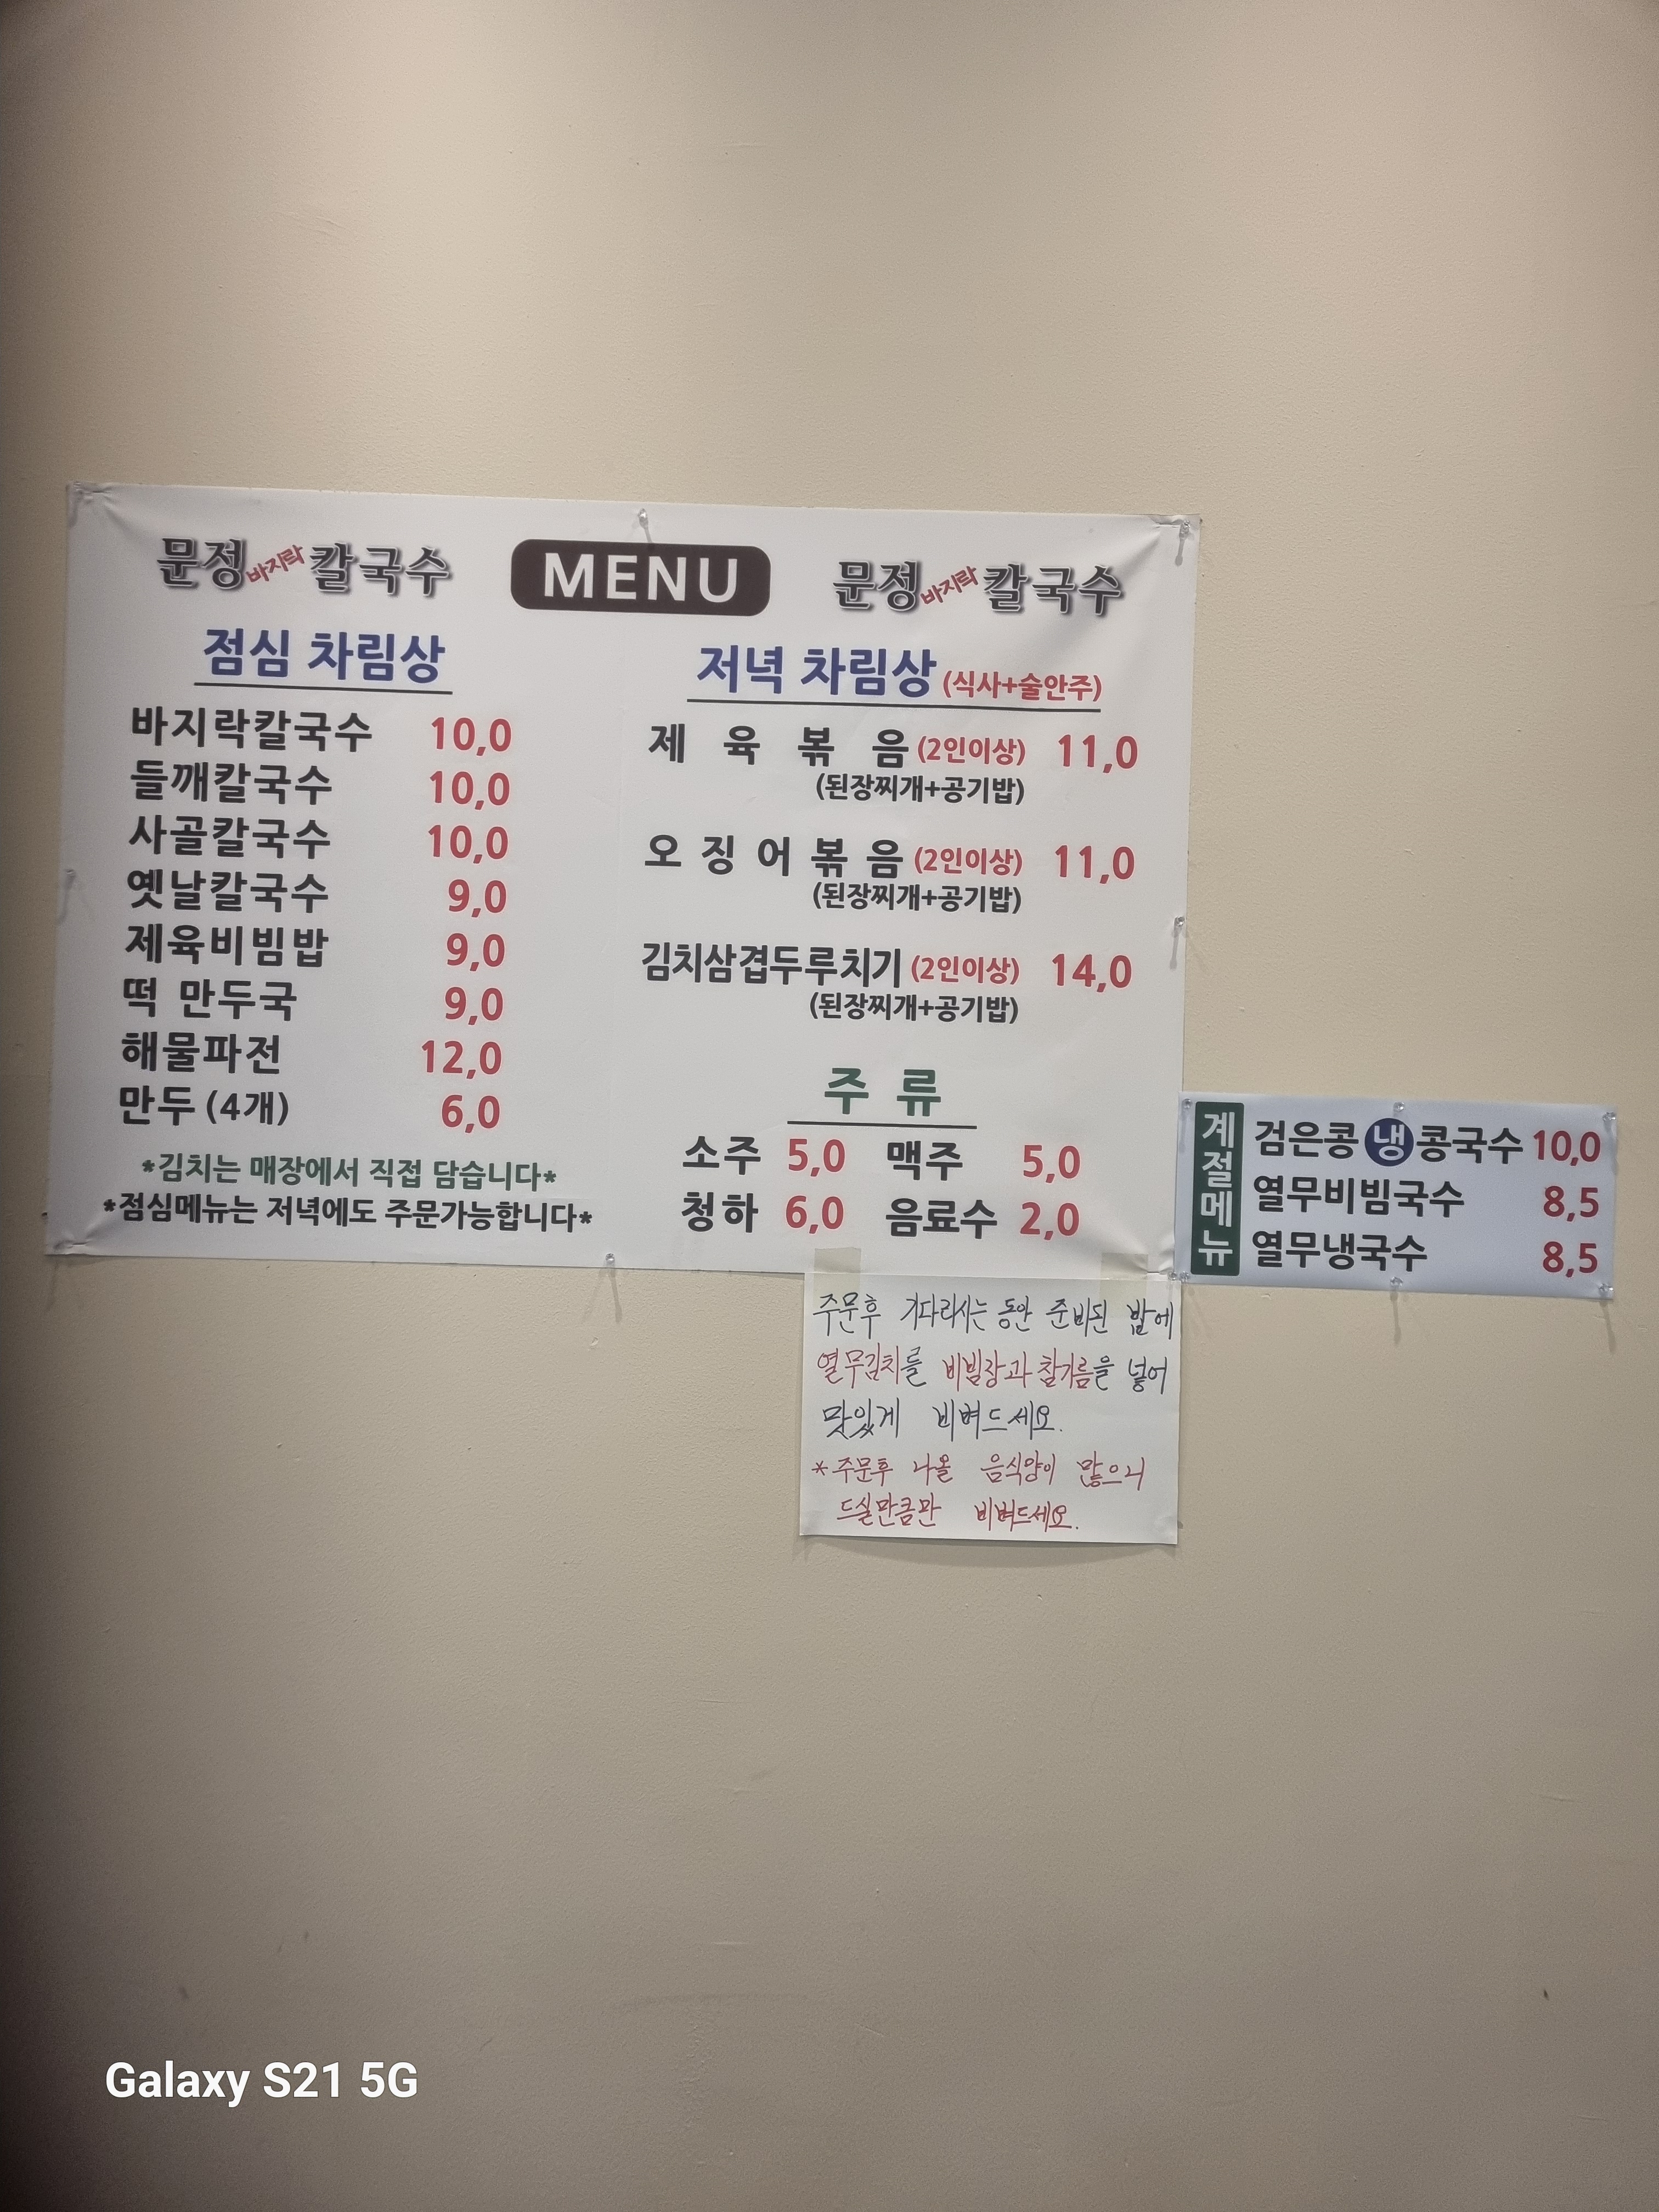 문정바지락칼국수
MENU
문정바지락칼국수
점심 차림상
바지락칼국수 10,0
들깨칼국수 10,0
사골칼국수 10,0
옛날칼국수 9,0
제육비빔밥 9,0
떡 만두국 9,0
해물파전 12,0
만두 (4개) 6,0
*김치는 매장에서 직접 담습니다*
*점심메뉴는 저녁에도 주문가능합니다*
저녁 차림상 (식사+술안주)
제 육 볶 음 (2인이상) 11,0
(된장찌개+공기밥)
오 징 어 볶 음 (2인이상) 11,0
(된장찌개+공기밥)
김치삼겹두루치기 (2인이상) 14,0
(된장찌개+공기밥)
주 류
소주 5,0 맥주 5,0
청하 6,0 음료수 2,0
계절메뉴
검은콩 냉 콩국수 10,0
열무비빔국수 8,5
열무냉국수 8,5
주문후 기다리시는 동안 준비된 밥에
열무김치를 비빔장과 참기름을 넣어
맛있게 비벼드세요.
* 주문후 나올 음식양이 많으니
드실만큼만 비벼드세요.
Galaxy S21 5G